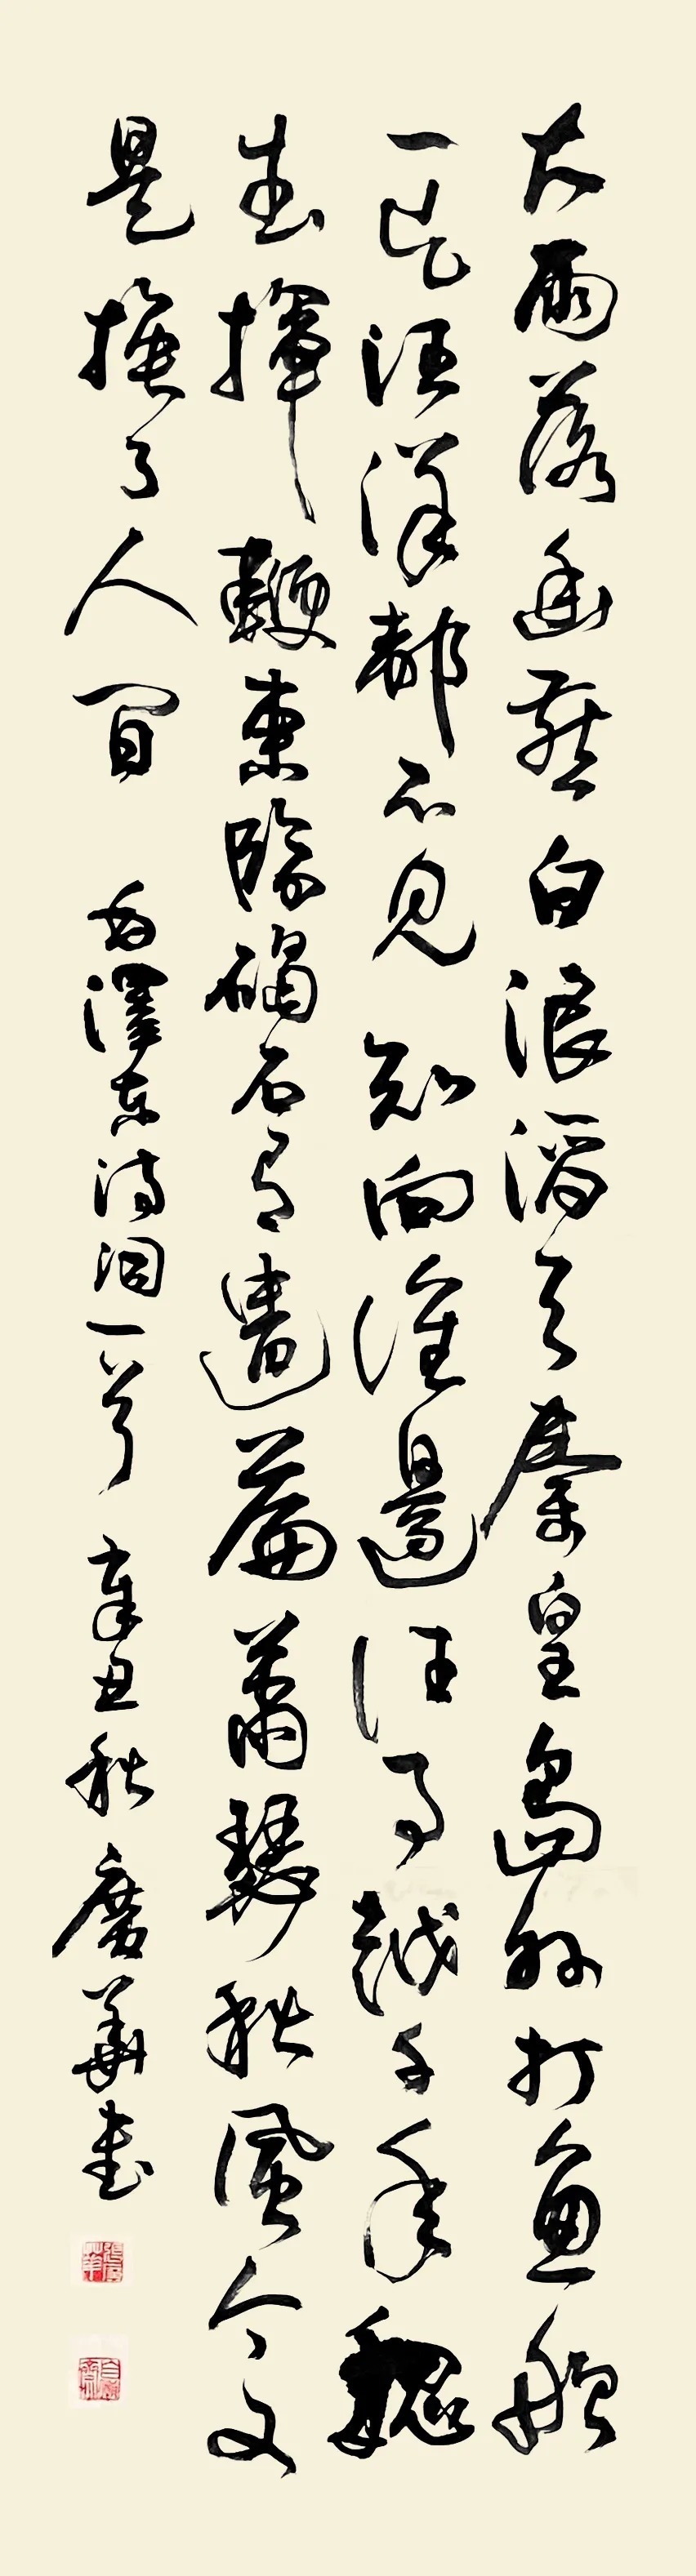 大雨落幽燕白浪滔天秦皇島外打魚船
一片汪洋都不見知向誰邊往事越千年魏
武揮鞭東臨碣石有遺篇蕭瑟秋風今又
是換了人間 毛澤東詩詞一首 辛丑秋 廣華書